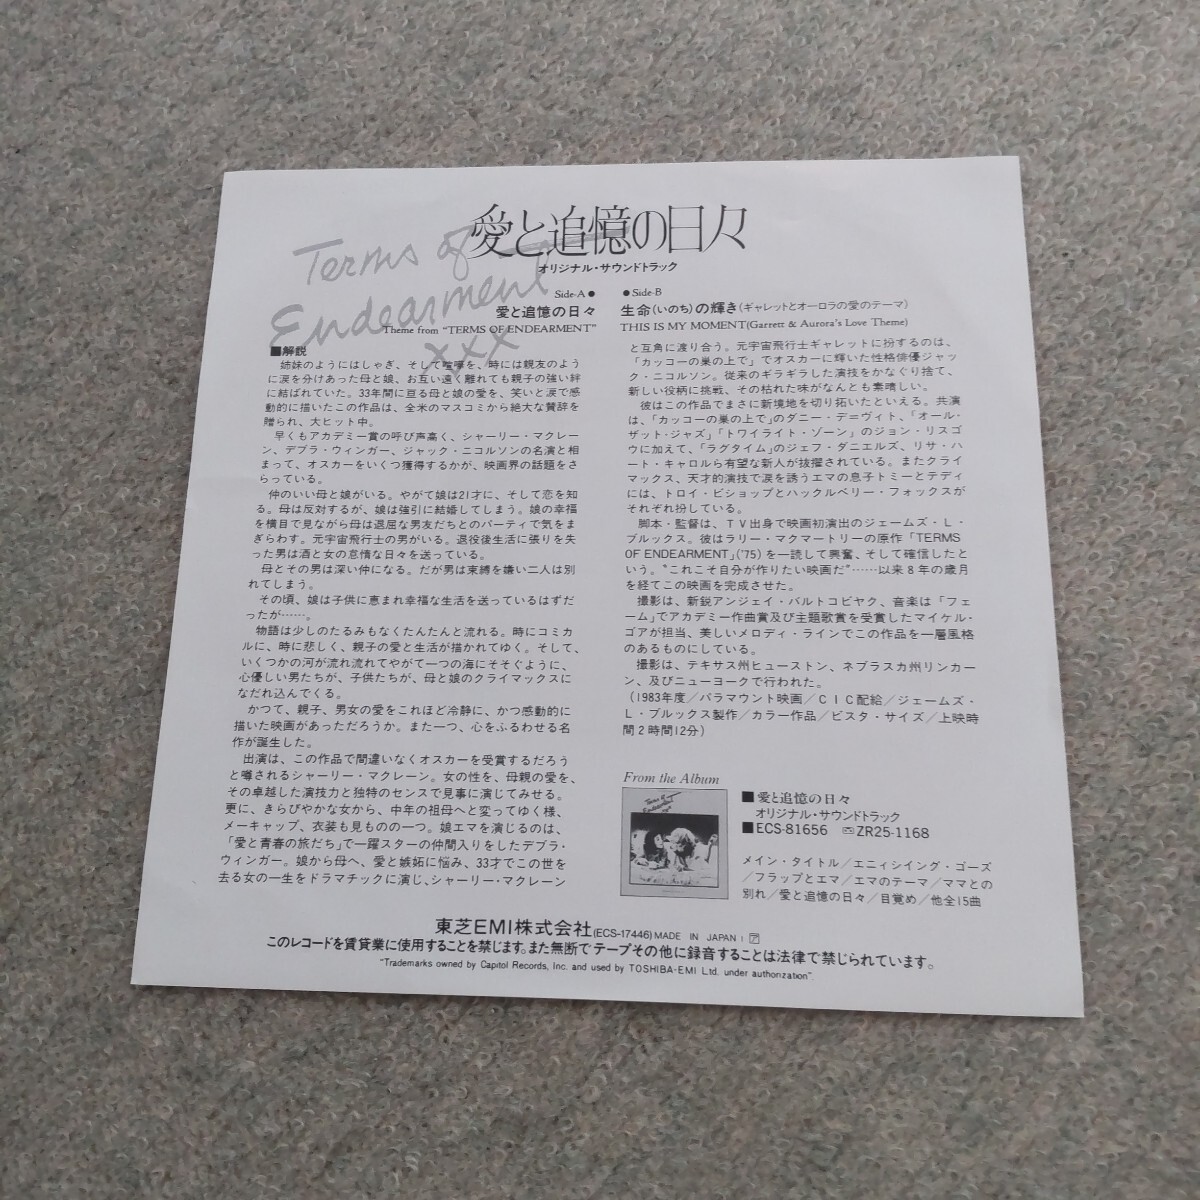 愛と追憶の日々
Terms of
Endearment
xxx
オリジナル・サウンドトラック
Side-A●
愛と追憶の日々
Theme from "TERMS OF ENDEARMENT"
●Side-B
生命(いのち)の輝き(ギャレットとオーロラの愛のテーマ)
THIS IS MY MOMENT(Garrett & Aurora's Love Theme)
■解説
姉妹のようにはしゃぎ、そして喧嘩を、時には親友のよう
に涙を分けあった母と娘、お互い遠く離れても親子の強い絆
に結ばれていた。33年間に亘る母と娘の愛を、笑いと涙で感
動的に描いたこの作品は、全米のマスコミから絶大な賛辞を
贈られ、大ヒット中。
早くもアカデミー賞の呼び声高く、シャーリー・マクレー
ン、デブラ・ウィンガー、ジャック・ニコルソンの名演と相
まって、オスカーをいくつ獲得するかが、映画界の話題をさ
らっている。
仲のいい母と娘がいる。やがて娘は21才に、そして恋を知
る。母は反対するが、娘は強引に結婚してしまう。娘の幸福
を横目で見ながら母は退屈な男友だちとのパーティで気をま
ぎらわす。元宇宙飛行士の男がいる。退役後生活に張りを失
った男は酒と女の怠惰な日々を送っている。
母とその男は深い仲になる。だが男は束縛を嫌い二人は別
れてしまう。
その頃、娘は子供に恵まれ幸福な生活を送っているはずだ
ったが……。
物語は少しのたるみもなくたんたんと流れる。時にコミカ
ルに、時に悲しく、親子の愛と生活が描かれてゆく。そして、
いくつかの河が流れ流れてやがて一つの海にそそぐように、
心優しい男たちが、子供たちが、母と娘のクライマックスに
なだれ込んでくる。
かつて、親子、男女の愛をこれほど冷静に、かつ感動的に
描いた映画があっただろうか。また一つ、心をふるわせる名
作が誕生した。
出演は、この作品で間違いなくオスカーを受賞するだろう
と噂されるシャーリー・マクレーン。女の性を、母親の愛を、
その卓越した演技力と独特のセンスで見事に演じてみせる。
更に、きらびやかな女から、中年の祖母へと変ってゆく様、
メーキャップ、衣裳も見ものの一つ。娘エマを演じるのは、
「愛と青春の旅だち」で一躍スターの仲間入りをしたデブラ・
ウィンガー。娘から母へ、愛と嫉妬に悩み、33才でこの世を
去る女の一生をドラマチックに演じ、シャーリー・マクレーン
と互角に渡り合う。元宇宙飛行士ギャレットに扮するのは、
「カッコーの巣の上で」でオスカーに輝いた性格俳優ジャッ
ク・ニコルソン。従来のギラギラした演技をかなぐり捨て、
新しい役柄に挑戦、その枯れた味がなんとも素晴しい。
彼はこの作品でまさに新境地を切り拓いたといえる。共演
は、「カッコーの巣の上で」のダニー・デ=ヴィト、「オール・
ザット・ジャズ」「トワイライト・ゾーン」のジョン・リスゴ
ウに加えて、「ラグタイム」のジェフ・ダニエルズ、リサ・ハ
ート・キャロルら有望な新人が抜擢されている。またクライ
マックス、天才的演技で涙を誘うエマの息子トミーとテディ
には、トロイ・ビショップとハックルベリー・フォックスが
それぞれ扮している。
脚本・監督は、TV出身で映画初演出のジェームズ・L・
ブルックス。彼はラリー・マクマートリーの原作「TERMS
OF ENDEARMENT」('75)を一読して興奮、そして確信したと
いう。"これこそ自分が作りたい映画だ"……以来8年の歳月
を経てこの映画を完成させた。
撮影は、新鋭アンジェイ・バルトコビヤク、音楽は「フェ
ーム」でアカデミー作曲賞及び主題歌賞を受賞したマイケル・
ゴアが担当、美しいメロディ・ラインでこの作品を一層風格
のあるものにしている。
撮影は、テキサス州ヒューストン、ネブラスカ州リンカー
ン、及びニューヨークで行われた。
(1983年度/パラマウント映画/CIC配給/ジェームズ・
L・ブルックス製作/カラー作品/ビスタ・サイズ/上映時
間2時間12分)
From the Album
Terms of
Endearment
■愛と追憶の日々
オリジナル・サウンドトラック
■ECS-81656 ZR25-1168
メイン・タイトル/エニィシイング・ゴーズ
/フラップとエマ/エマのテーマ/ママとの
別れ/愛と追憶の日々/目覚め/他全15曲
東芝EMI株式会社(ECS-17446)MADE IN JAPAN I ア
このレコードを賃貸業に使用することを禁じます。また無断でテープその他に録音することは法律で禁じられています。
"Trademarks owned by Capitol Records, Inc. and used by TOSHIBA-EMI Ltd. under authorization"